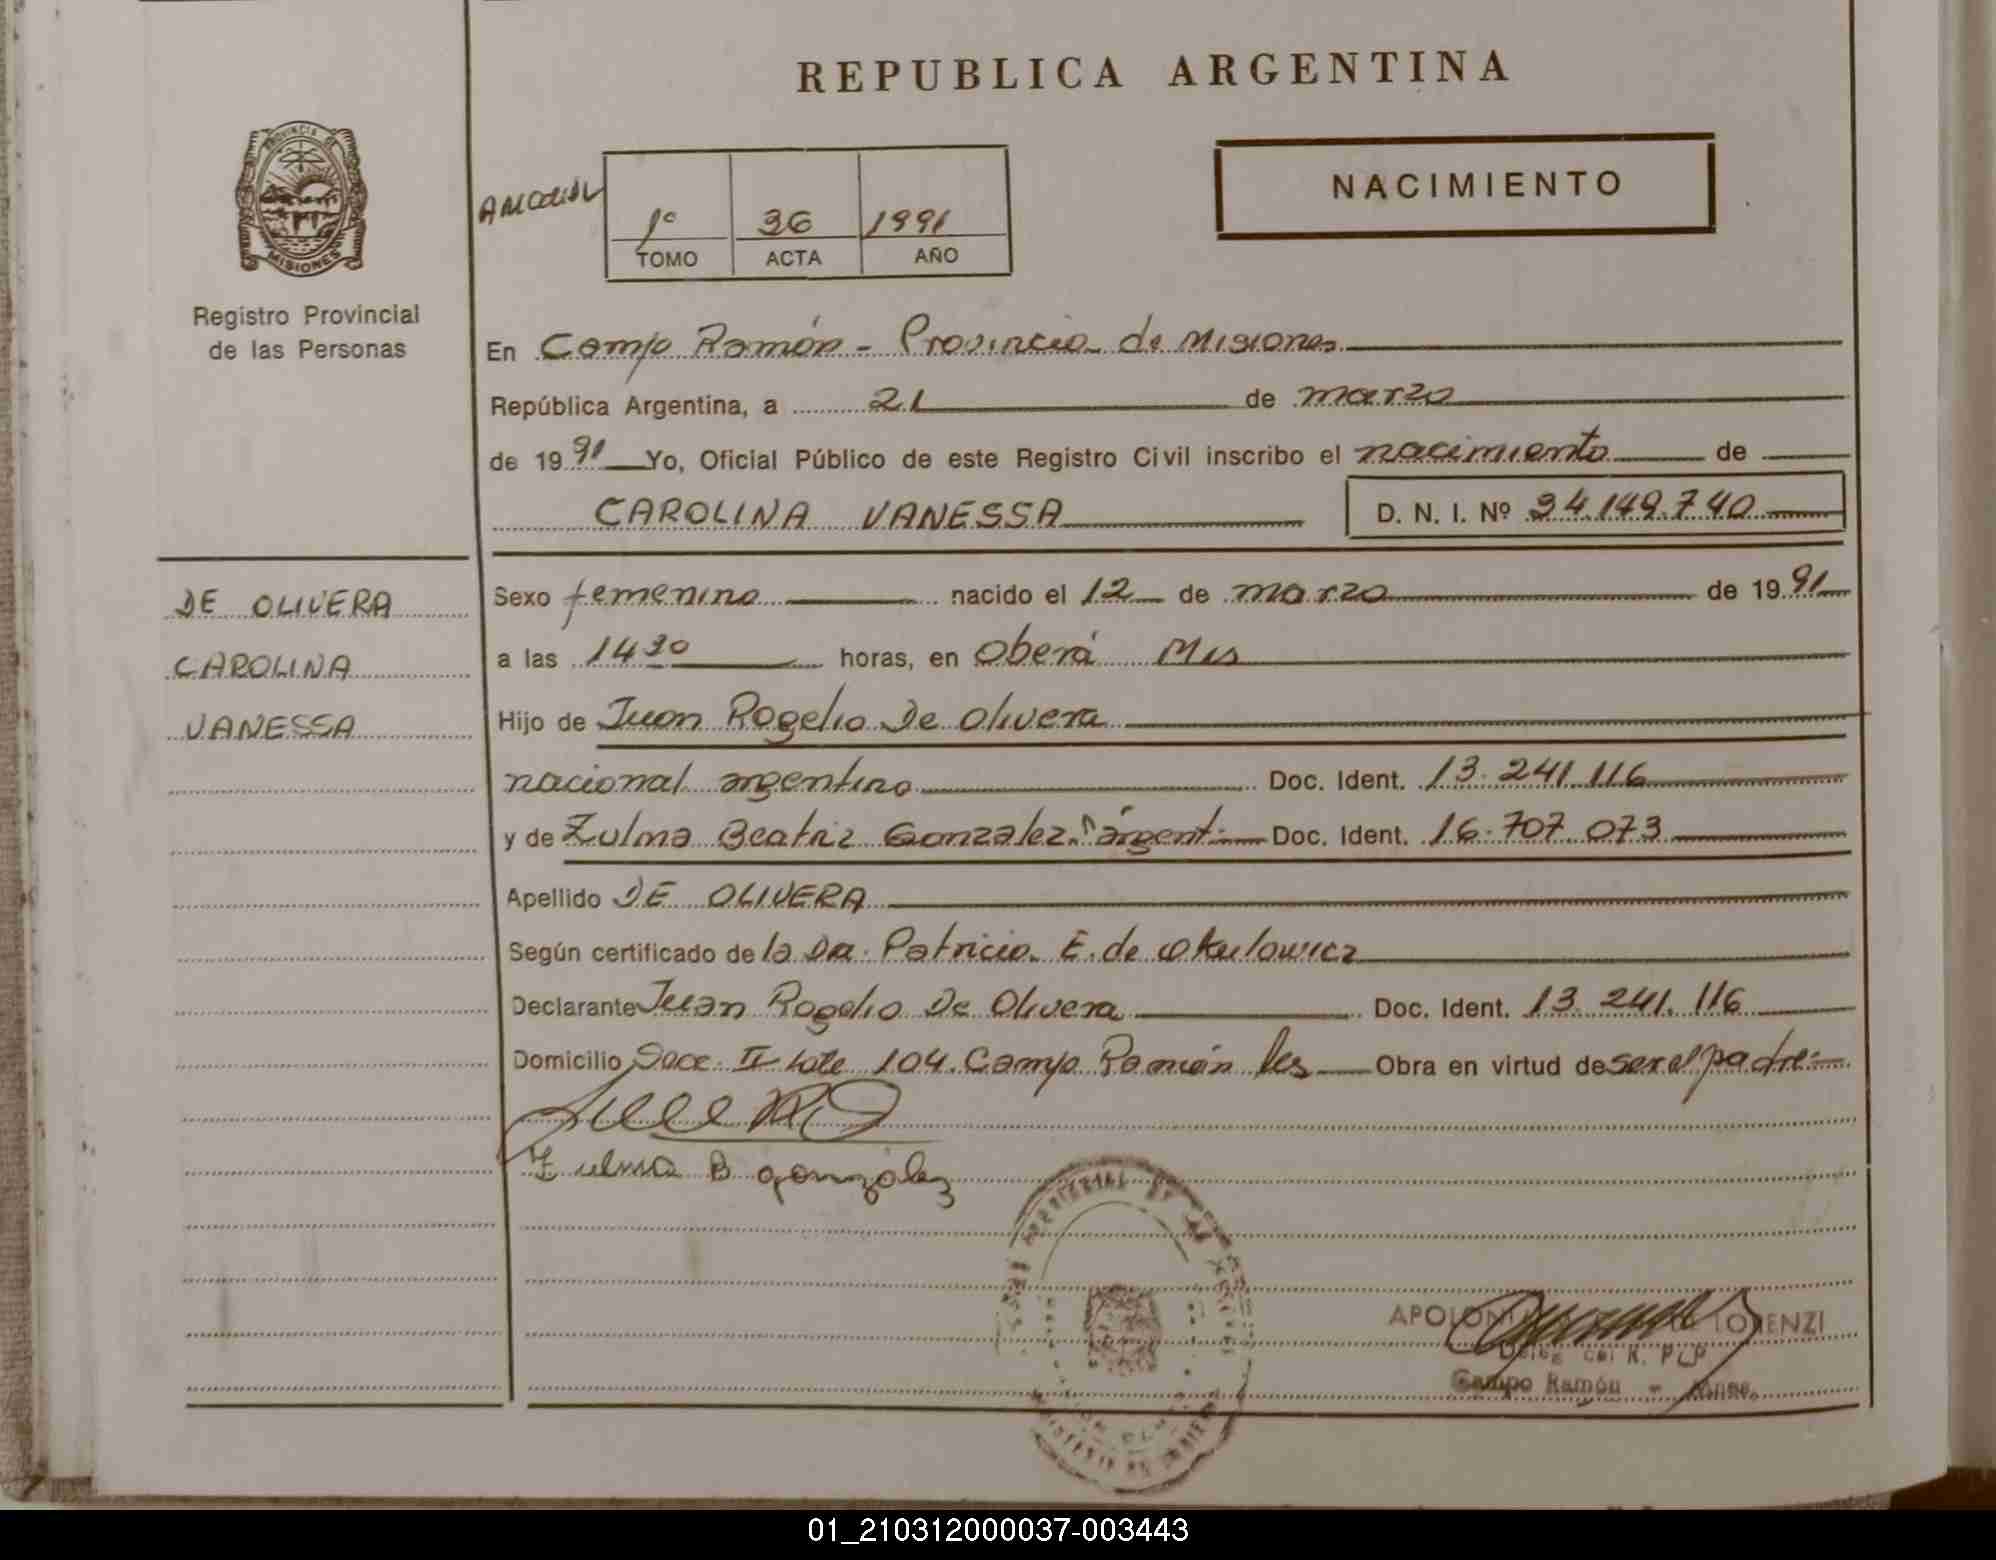 REPUBLICA ARGENTINA
PROVINCIA DE
MISIONES
Registro Provincial
de las Personas
1º 36 1991
TOMO ACTA AÑO
NACIMIENTO
En Campo Ramón - Provincia de Misiones
República Argentina, a 21 de marzo
de 1991 Yo, Oficial Público de este Registro Civil inscribo el nacimiento de
CAROLINA VANESSA D. N. I. Nº 34.149.740
DE OLIVERA
CAROLINA
VANESSA
Sexo femenino nacido el 12 de marzo de 1991
a las 14 30 horas, en Oberá Mis
Hijo de Juan Rogelio De Olivera
nacional argentino Doc. Ident. 13.241.116
y de Zulma Beatriz Gonzalez argent. Doc. Ident. 16.707.073
Apellido DE OLIVERA
Según certificado de la Dra. Patricia E. de Okulowicz
Declarante Juan Rogelio De Olivera Doc. Ident. 13.241.116
Domicilio Secc. II Lote 104. Campo Ramón Obra en virtud de ser el padre
Zulma B gonzalez
LORENZI
Campo Ramón - Mnes.
01_210312000037-003443